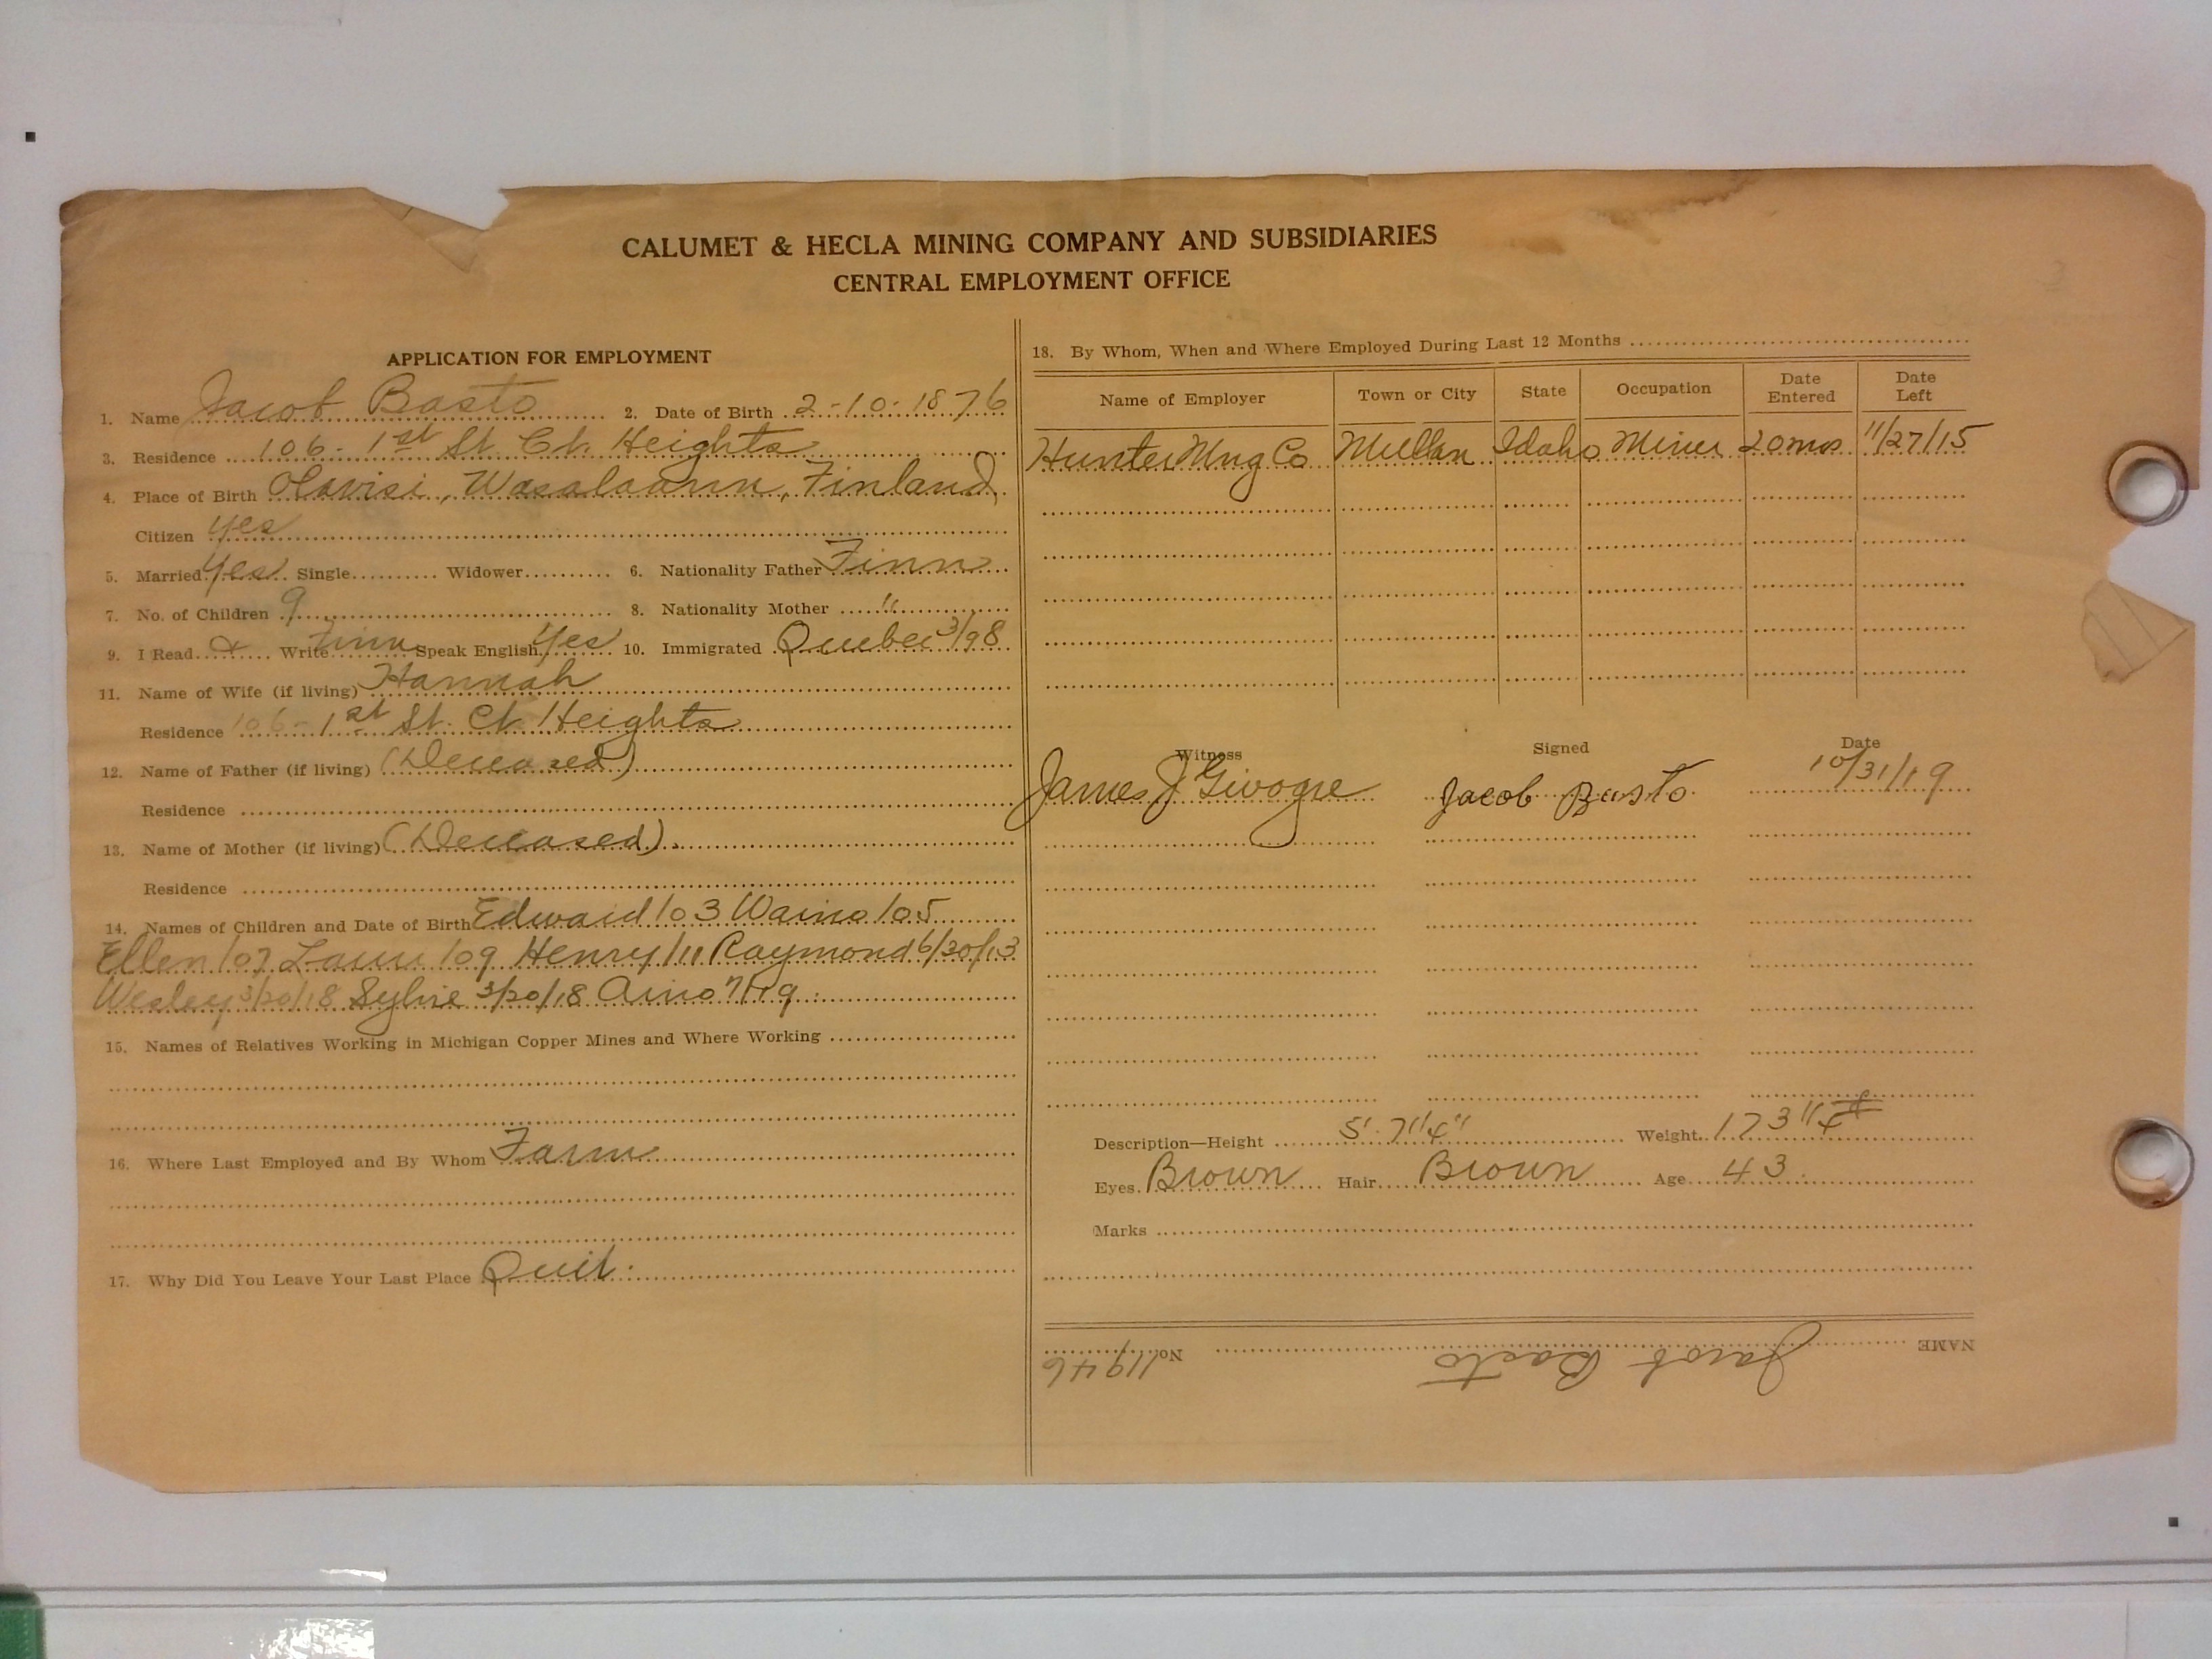 CALUMET & HECLA MINING COMPANY AND SUBSIDIARIES
CENTRAL EMPLOYMENT OFFICE
APPLICATION FOR EMPLOYMENT
1. Name Jacob Basto 2. Date of Birth 2-10-1876
3. Residence 106 - 1st St. Ct. Heights
4. Place of Birth Olavisi, Wasalaann, Finland
Citizen Yes
5. Married Yes Single Widower 6. Nationality Father Finn
7. No. of Children 9 8. Nationality Mother "
9. I Read & Write Finn Speak English Yes 10. Immigrated Quebec 3/98
11. Name of Wife (if living) Hannah
Residence 106 - 1st St. Ct. Heights
12. Name of Father (if living) (Deceased)
Residence
13. Name of Mother (if living) (Deceased)
Residence
14. Names of Children and Date of Birth Edward /03 Waino /05
Ellen /07 /09 Henry /11 Raymond 6/30/13
Wesley 3/20/18 Sylvie 3/20/18 Aino 7/19
15. Names of Relatives Working in Michigan Copper Mines and Where Working
16. Where Last Employed and By Whom Farm
17. Why Did You Leave Your Last Place Quit.
18. By Whom, When and Where Employed During Last 12 Months
Name of Employer Town or City State Occupation Date Entered Date Left
Hunter Mng Co Mullan Idaho Miner 20 mos 11/27/15
Witness Signed Date
James J Jacob Basto 10/31/19
Description—Height 5' 7 1/4" Weight 173 1/4 #
Eyes Brown Hair Brown Age 43
Marks
NAME Jacob Basto No. 11946